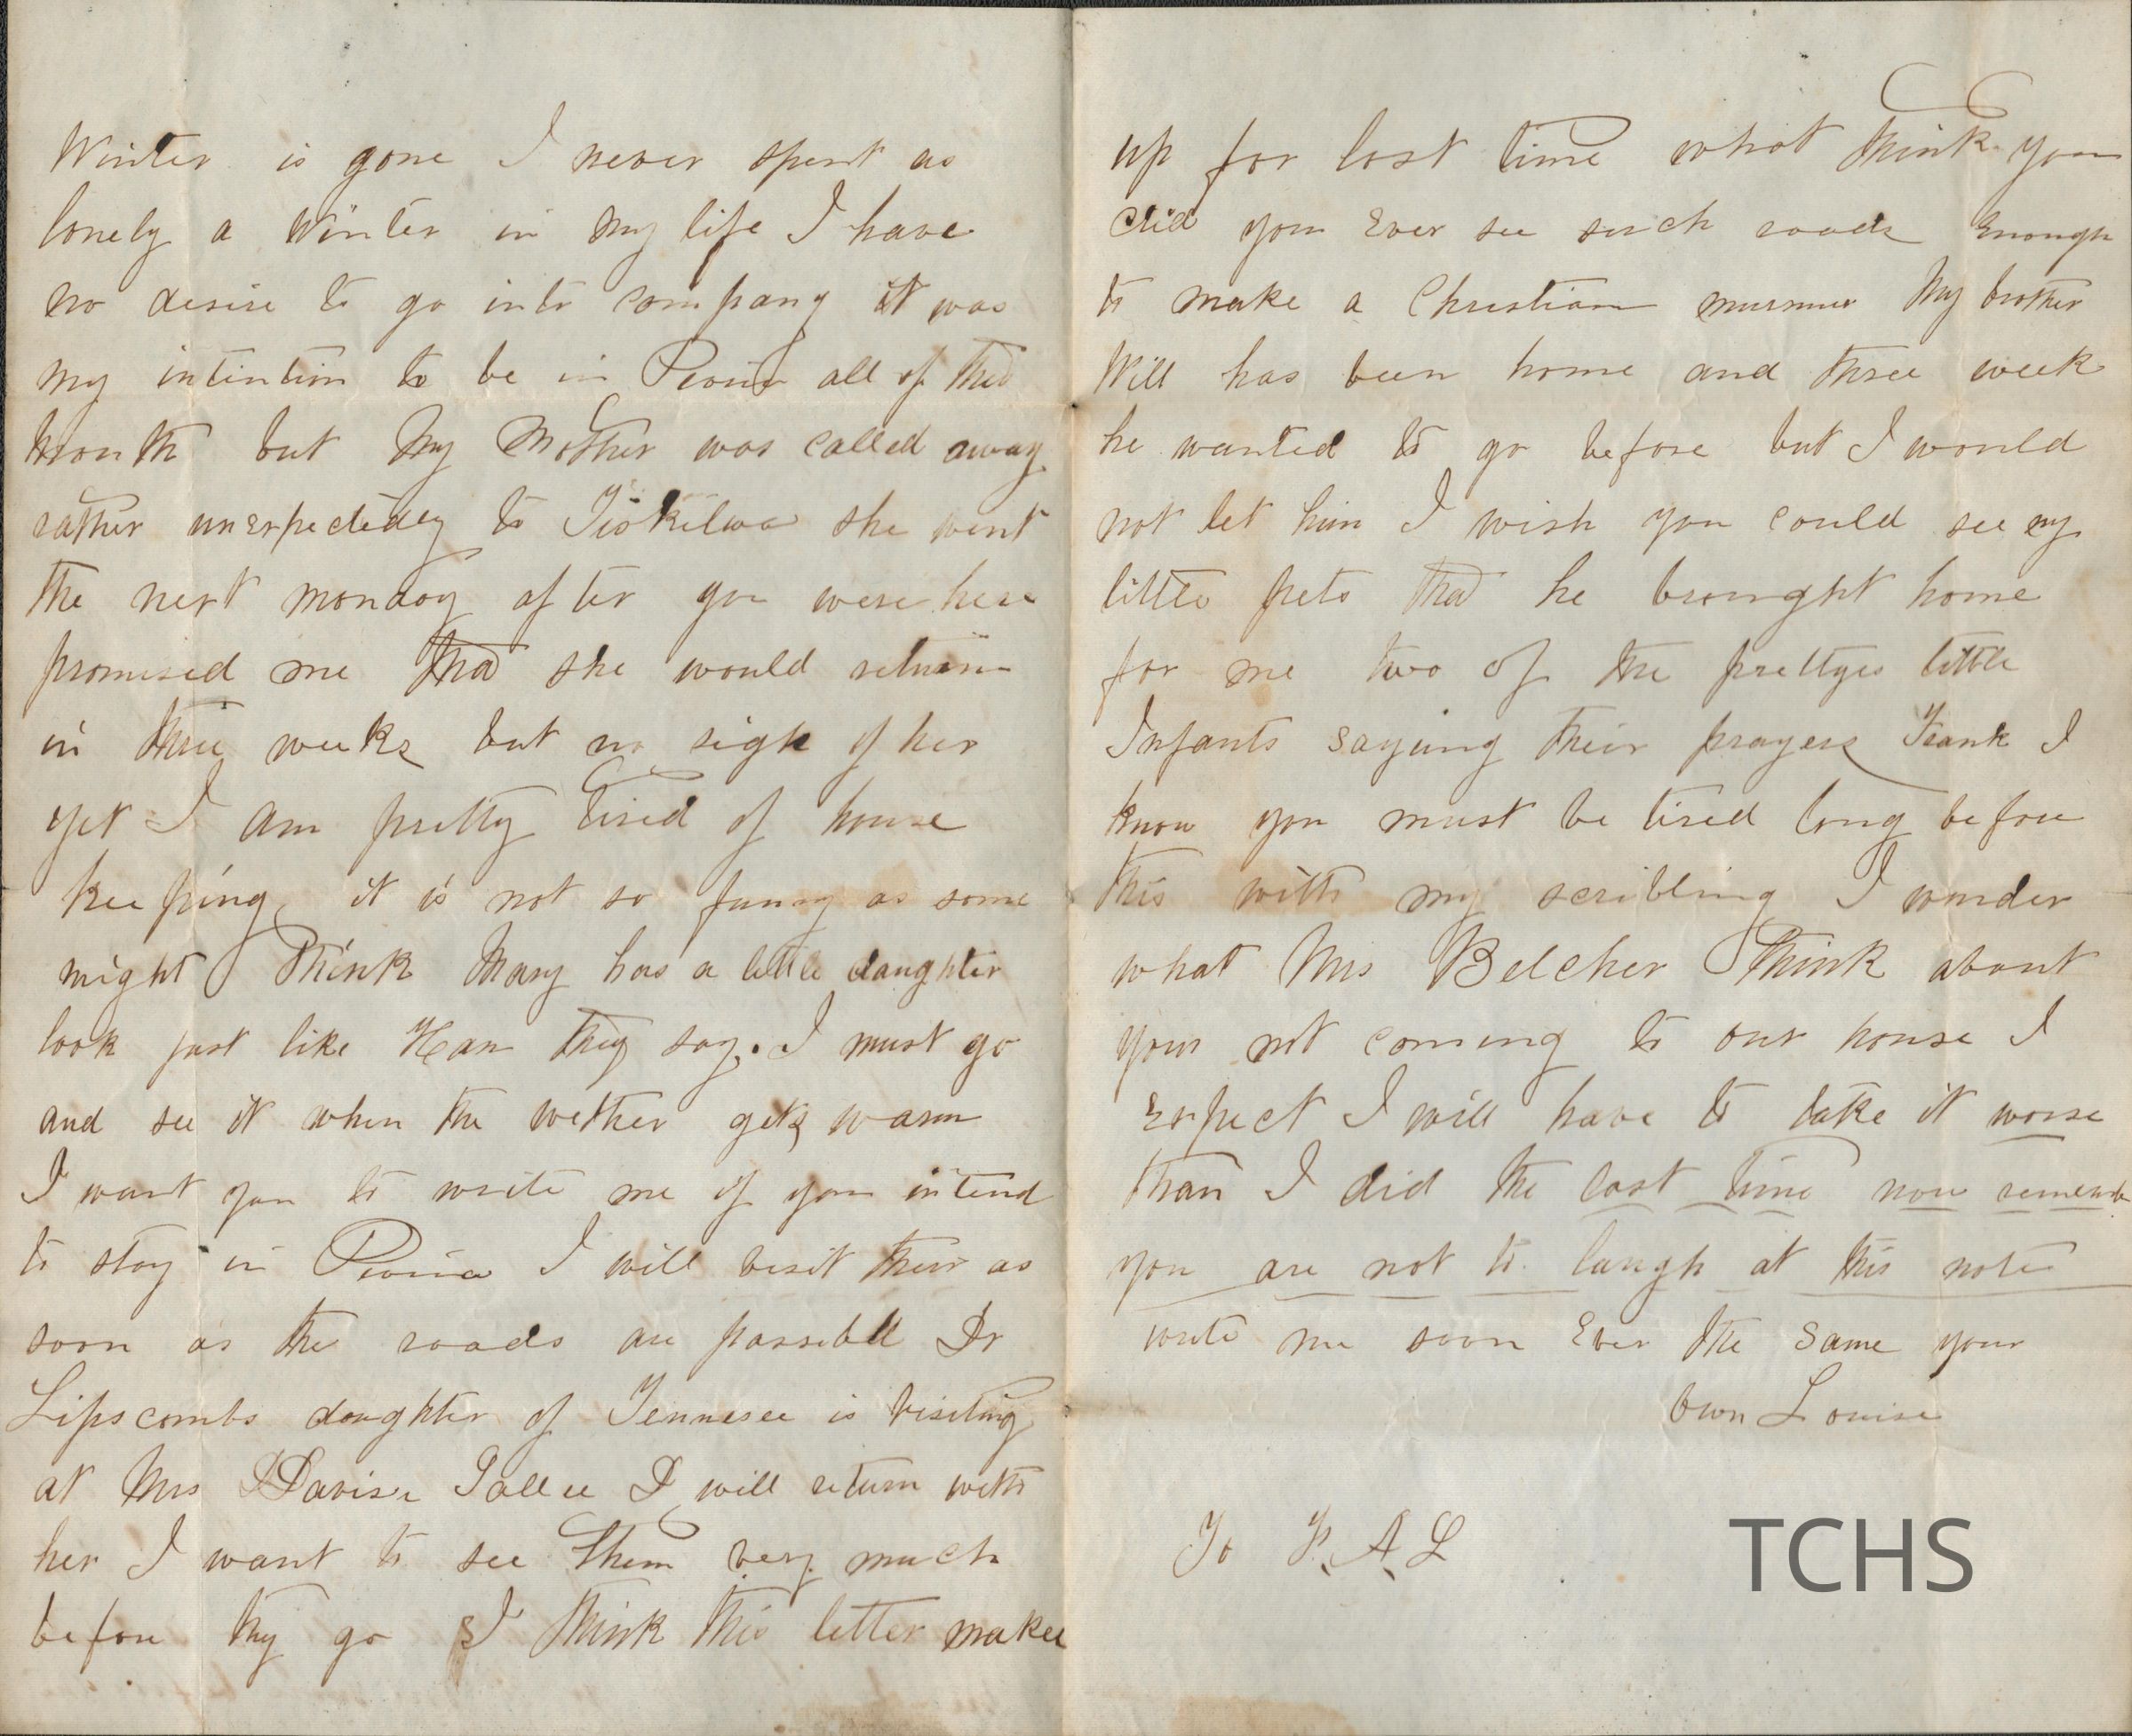 Winter is gone I never spent as
lonely a Winter in my life I have
no desire to go into company it was
my intention to be in Peoria all of this
month but My Mother was called away
rather unexpectedey to Tiskilwa she went
the next monday after you were here
promised me that she would return
in three weeks but no sigh of her
yet I am pretty tired of house
keeping it is not so funny as some
might Think Mary has a little daughter
look just like Han they say. I must go
and see it when the wether gets warm
I want you to write me if you intend
to stay in Peoria I will visit their as
soon as the roads are passible Dr
Lipscombs daughter of Tennesee is visiting
at Mrs Davise I will return with
her I want to see them very much
before thy go I think this letter makes
up for lost time what think you
did you Ever see such roads Enough
to make a Christian murmur My brother
Will has been home and three week
he wanted to go before but I would
not let him I wish you could see my
little pets that he brought home
for me two of the prettyes little
Infants sayiung their prayers Frank I
know you must be tired long before
this with my scribling I wonder
what Mrs Belcher Think about
your not coming to our house I
Expect I will have to take it worse
than I did the last time now remember
you are not to laugh at this note
write me soon Ever the same your
Own Louise
To F. A. L
TCHS